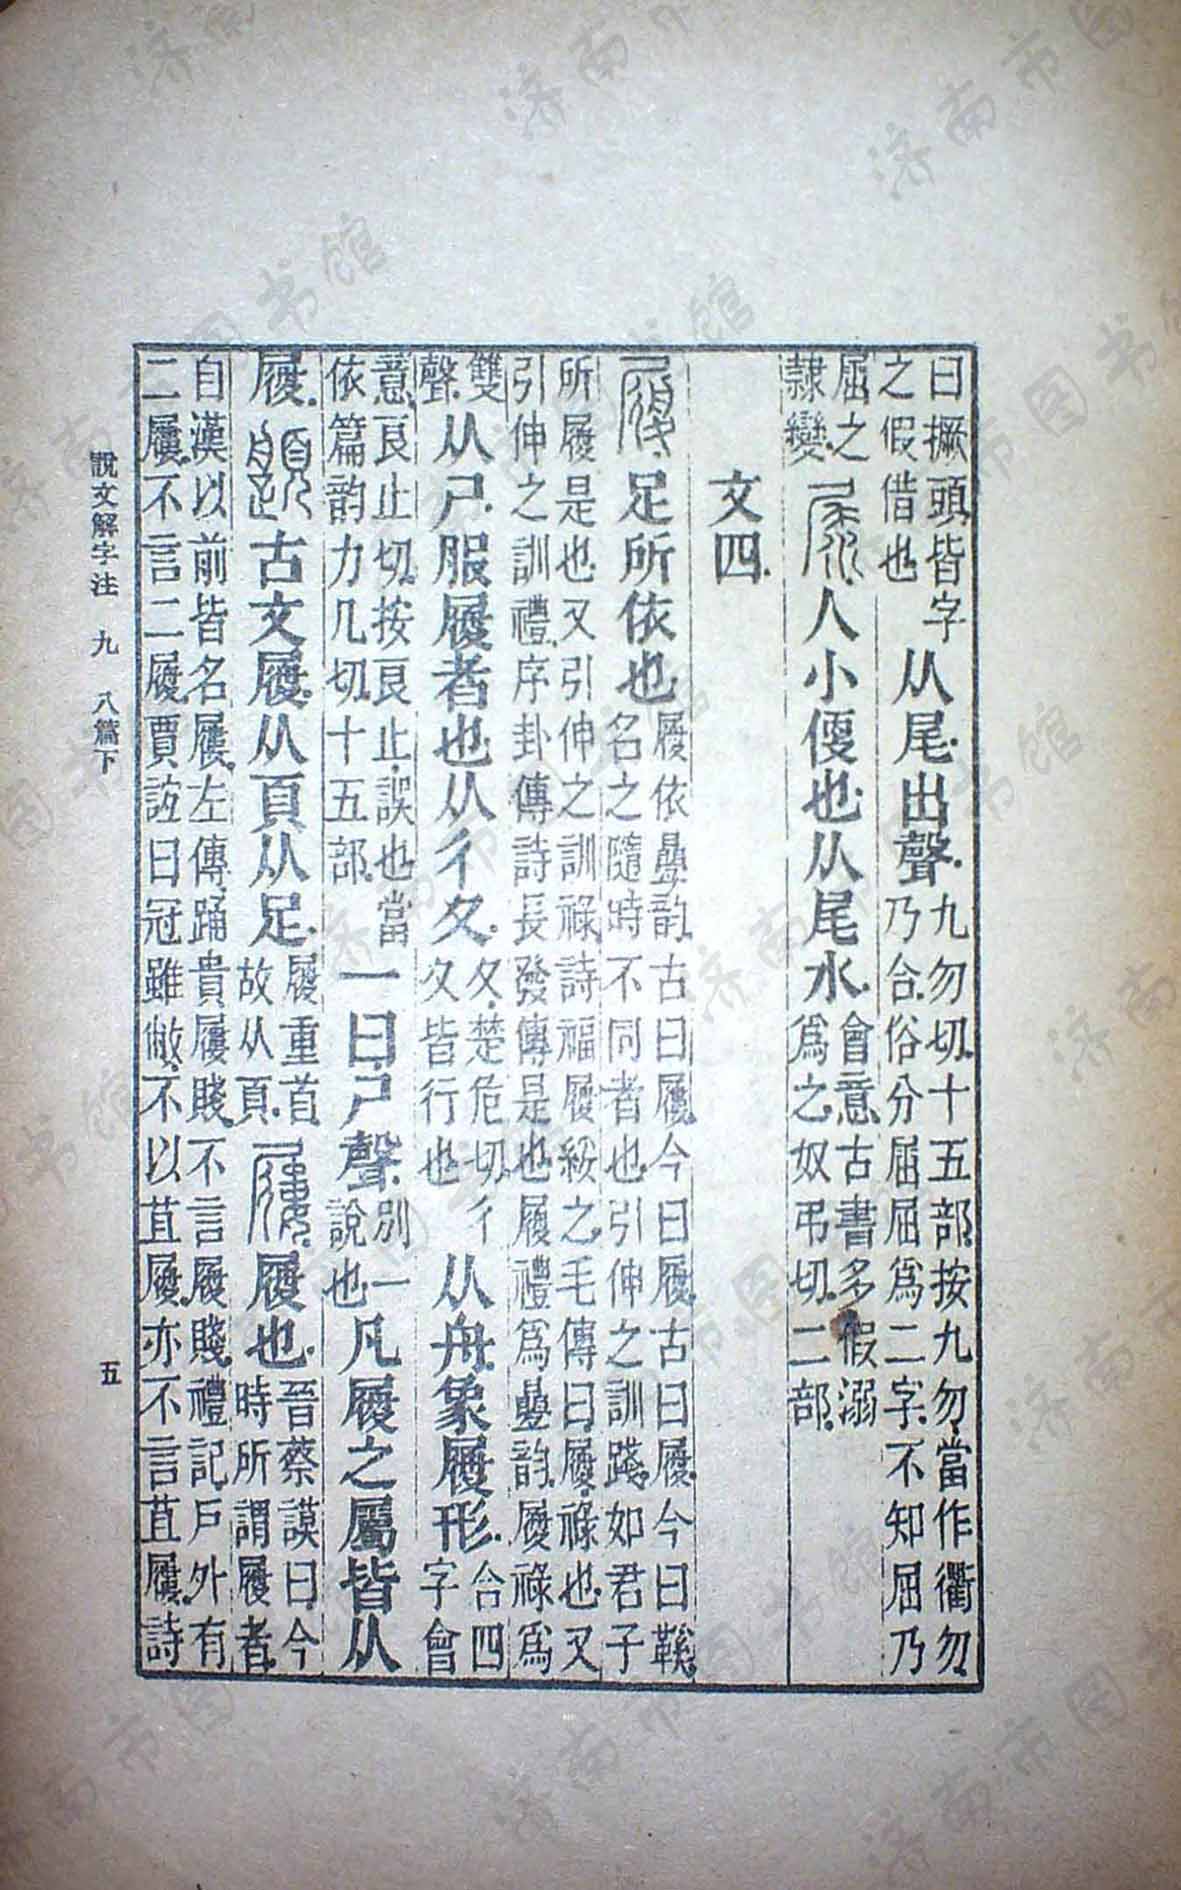 曰撅頭皆字之假借也从尾出聲九勿切十五部按九勿當作衢勿乃合俗分屈屈爲二字不知屈乃
屈之隸變尿人小便也从尾水會意古書多假溺爲之奴弔切二部
文四
履足所依也履依曡韵古曰屨今曰履古曰履今曰鞵名之隨時不同者也引伸之訓踐如君子
所履是也又引伸之訓祿詩福履綏之毛傳曰履祿也又引伸之訓禮序卦傳詩長發傳是也履禮爲曡韵履祿爲
雙聲从尸服履者也从彳夊夊楚危切彳夊皆行也从舟象履形合四字會
意良止切按良止誤也當依篇韵力几切十五部一曰尸聲別一說也凡履之屬皆从
履古文履从頁从足履重首故从頁屨履也晉蔡謨曰今時所謂履者
自漢以前皆名屨左傳踊貴屨賤不言履賤禮記戶外有二屨不言二履賈誼曰冠雖敝不以苴履亦不言苴屨詩
說文解字注 九 八篇下 五
济南市图书馆